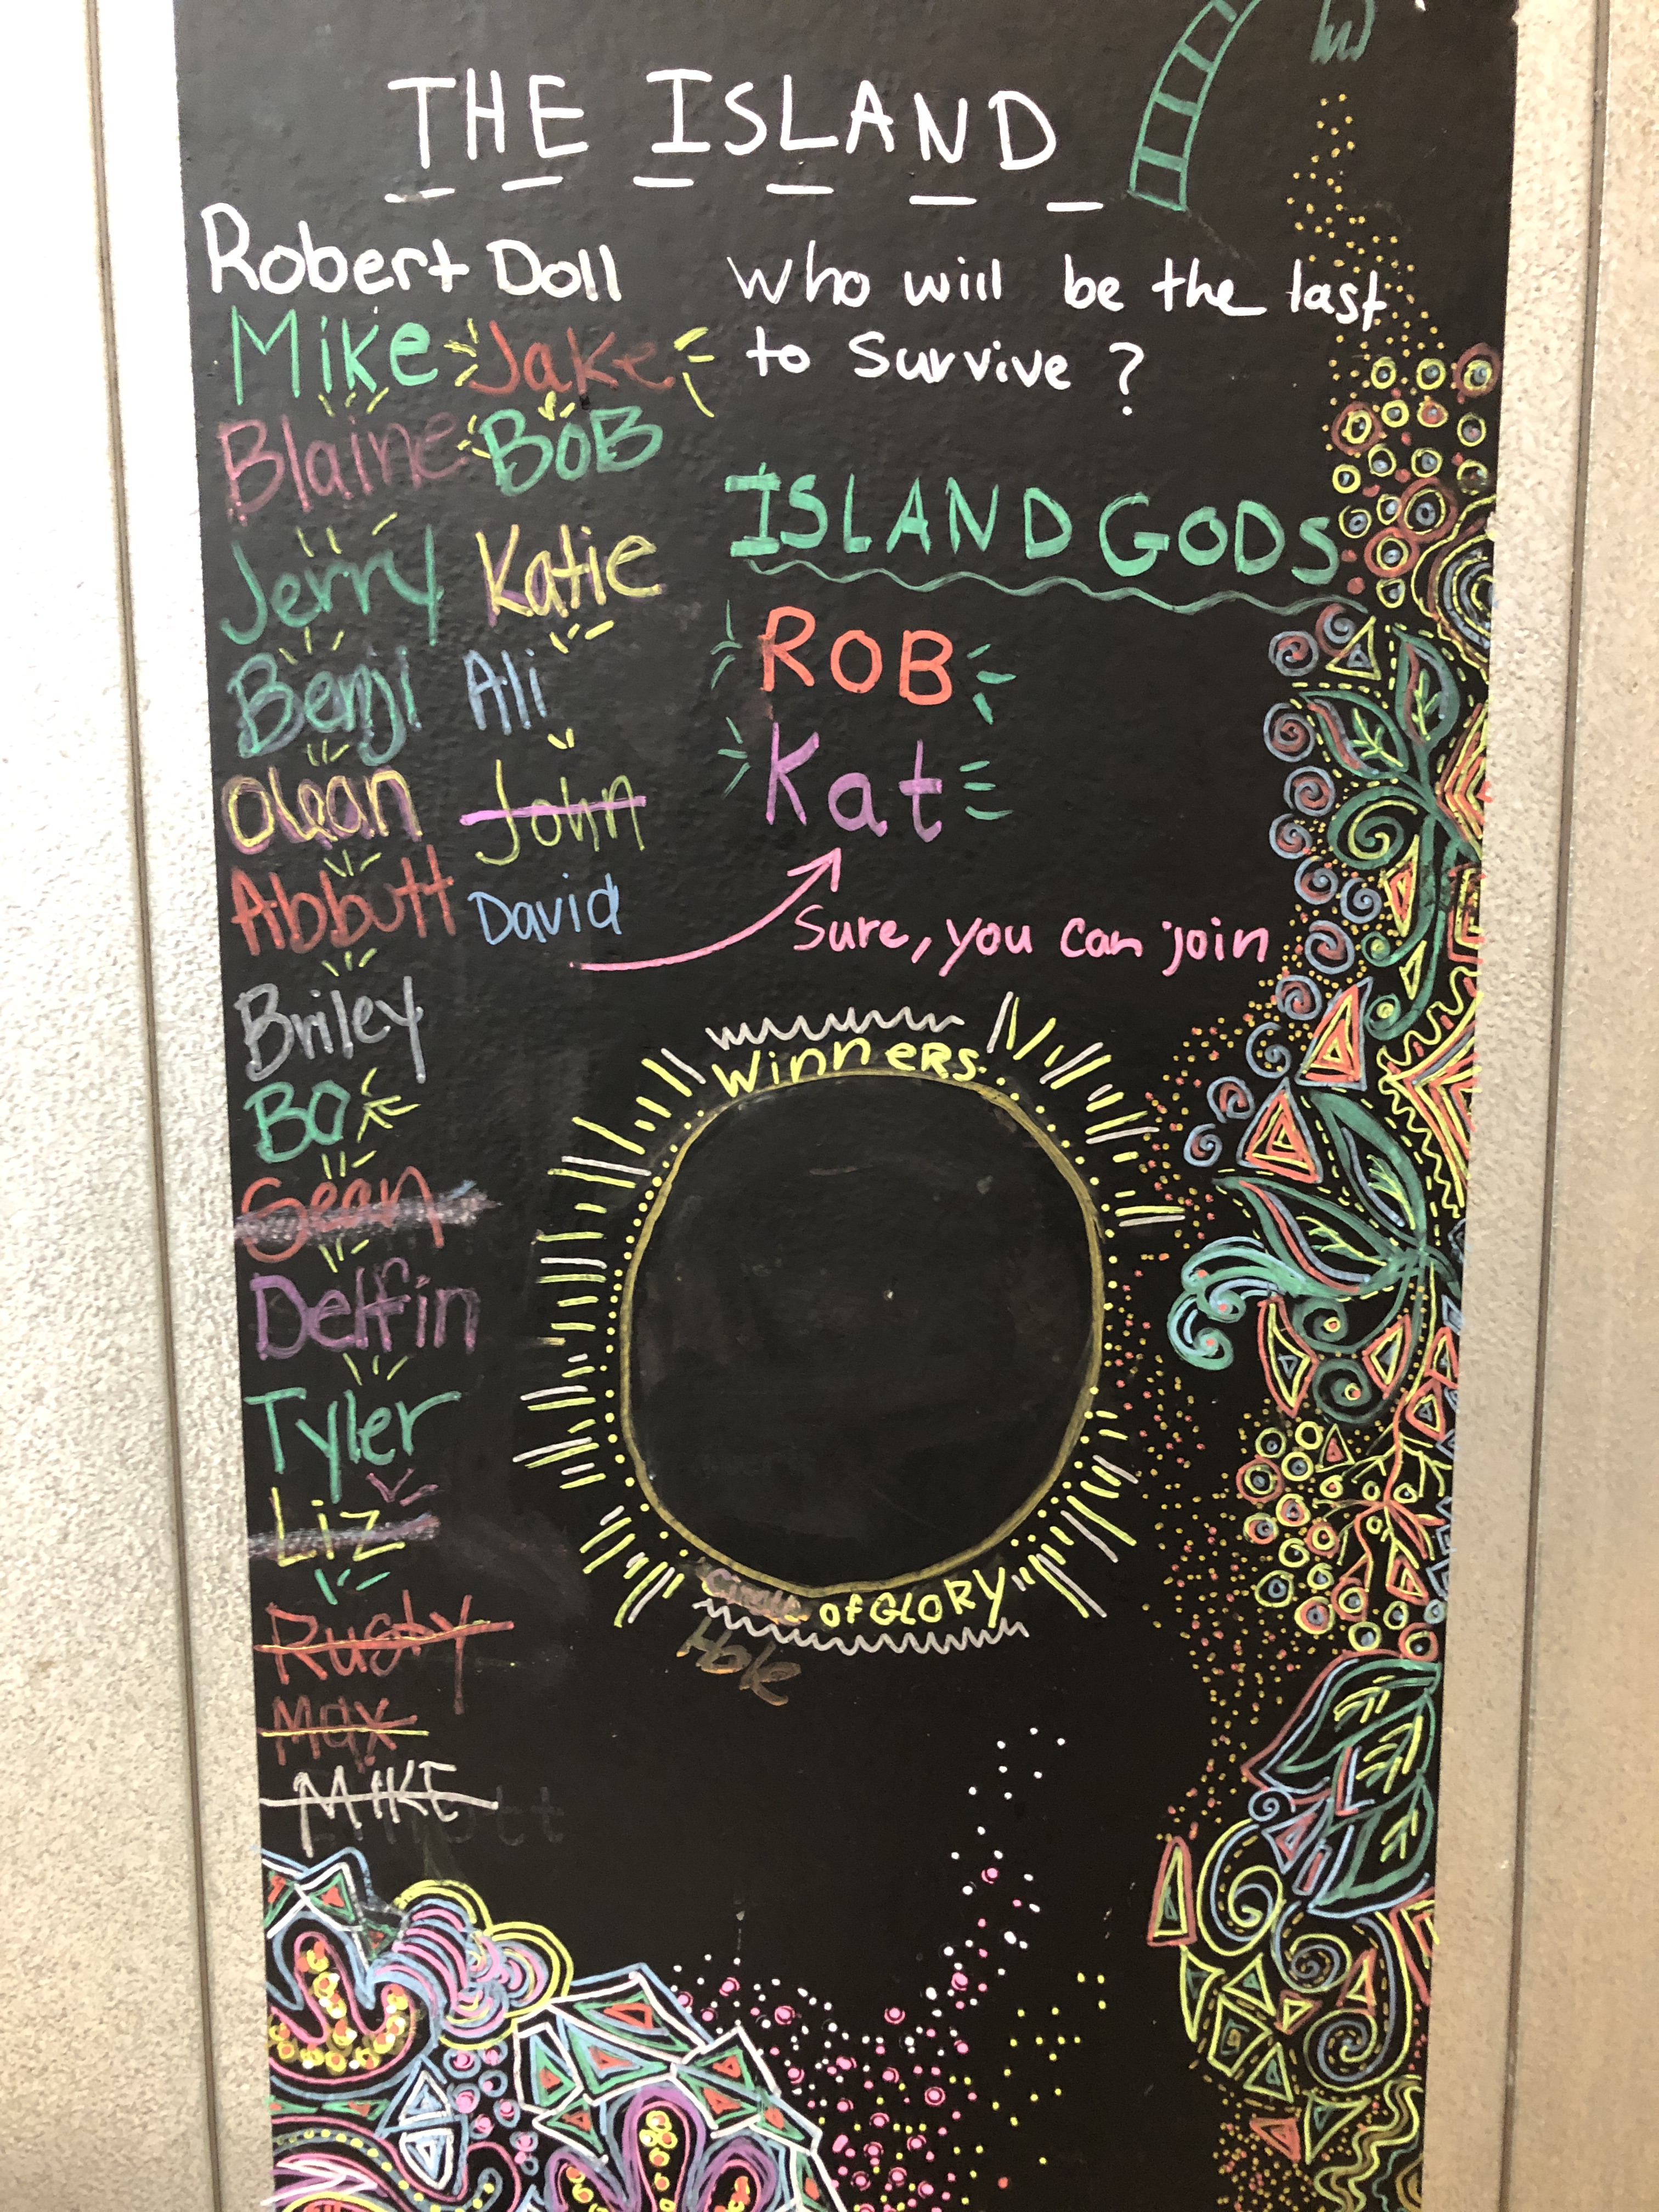 THE ISLAND
Robert Doll
Mike Jake
Blaine BOB
Jerry Katie
Benji Ali
Olean John
Abbutt David
Briley
BO
Sean
Delfin
Tyler
Liz
Rusty
Max
MIKE
Who will be the last
to Survive ?
ISLAND GODS
ROB
Kat
Sure, you can join
WinnERS
Circle of GLORY
Hole